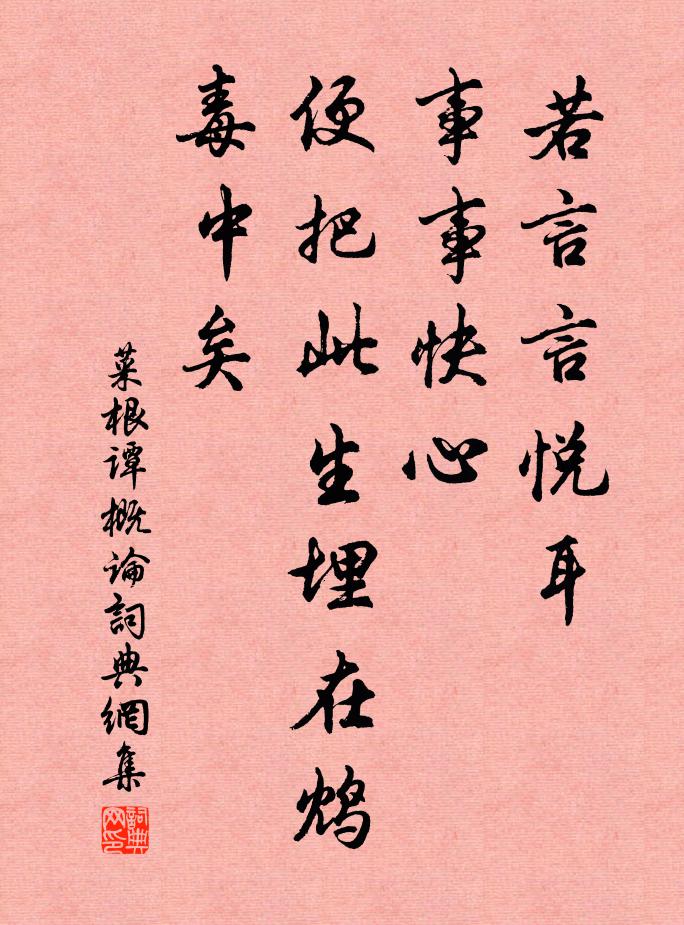 若言言悦耳
事事快心
便把此生埋在鸩
毒中矣
菜根谭概論詞典網集
詞典
网印